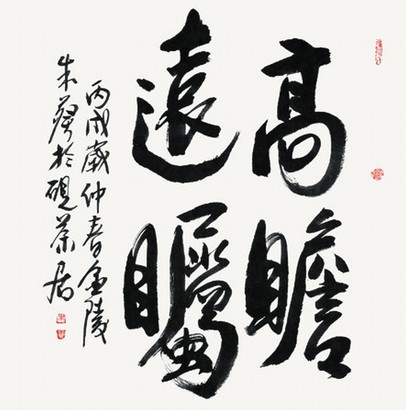 高瞻
遠矚
丙戌歲仲春金陵
朱於硯居